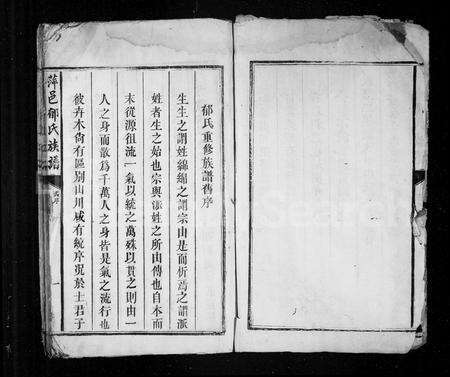 郁氏重修族譜舊序
生生之謂姓綿綿之謂宗由是而析焉之謂派
姓者生之始也宗與派姓之所由傳也自本而
末從源徂流一氣以統之萬殊以貫之則由一
人之身而散為千萬人之身皆是氣之流行也
彼卉木尙有區別山川咸有統序況於士君子
萍邑郁氏族譜
舊序
一